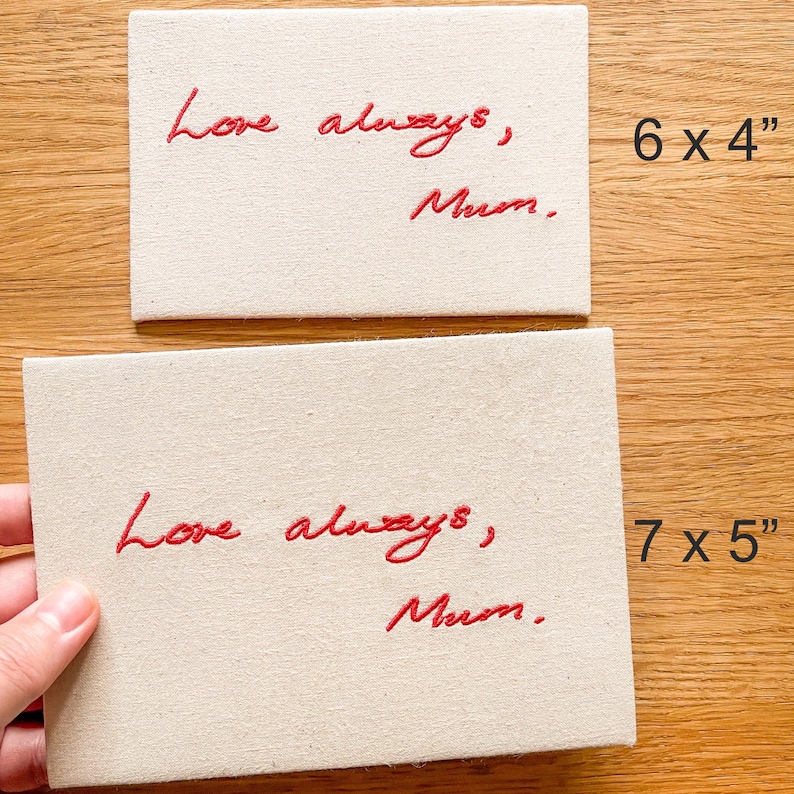 Love always,
Mum.
6 x 4”
Love always,
Mum.
7 x 5”